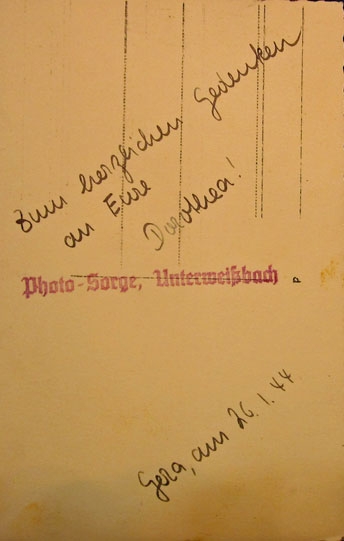 Zum herzlichen Gedenken
an Eure
Dorothea!
Photo-Sorge, Unterweißbach
P
Gera, am 26.1.44